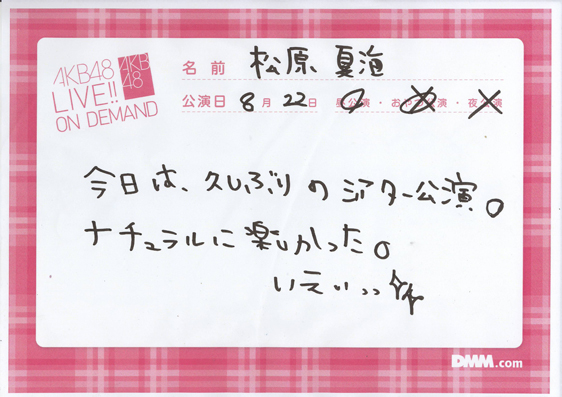 AKB48
LIVE!!
ON DEMAND
AKB
48
名前 松原 夏海
公演日 8月22日 昼公演・おやつ公演・夜公演
今日は、久しぶりのシアター公演。
ナチュラルに楽しかった。
いえいっっ
DMM.com